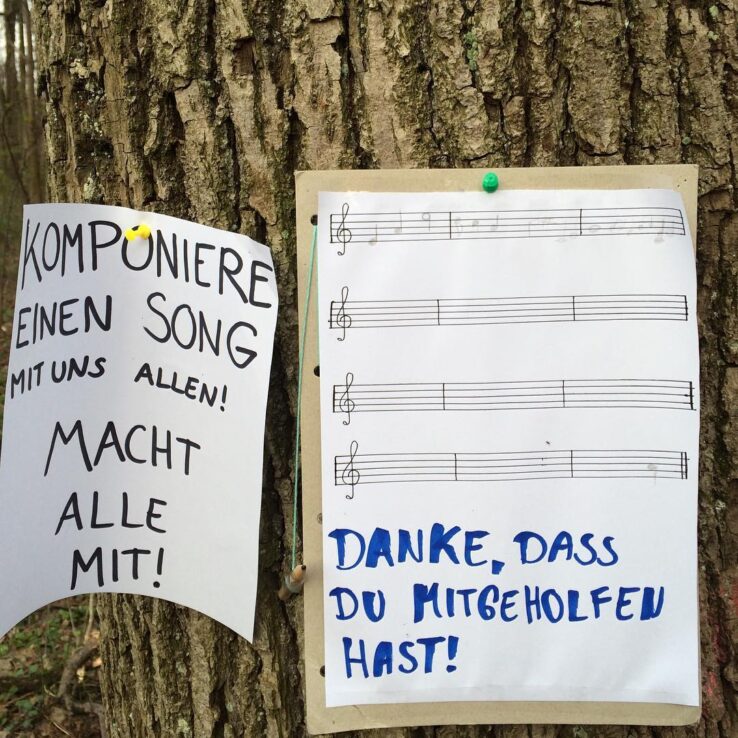 KOMPONIERE
EINEN SONG
MIT UNS ALLEN!
MACHT
ALLE
MIT!
DANKE, DASS
DU MITGEHOLFEN
HAST!